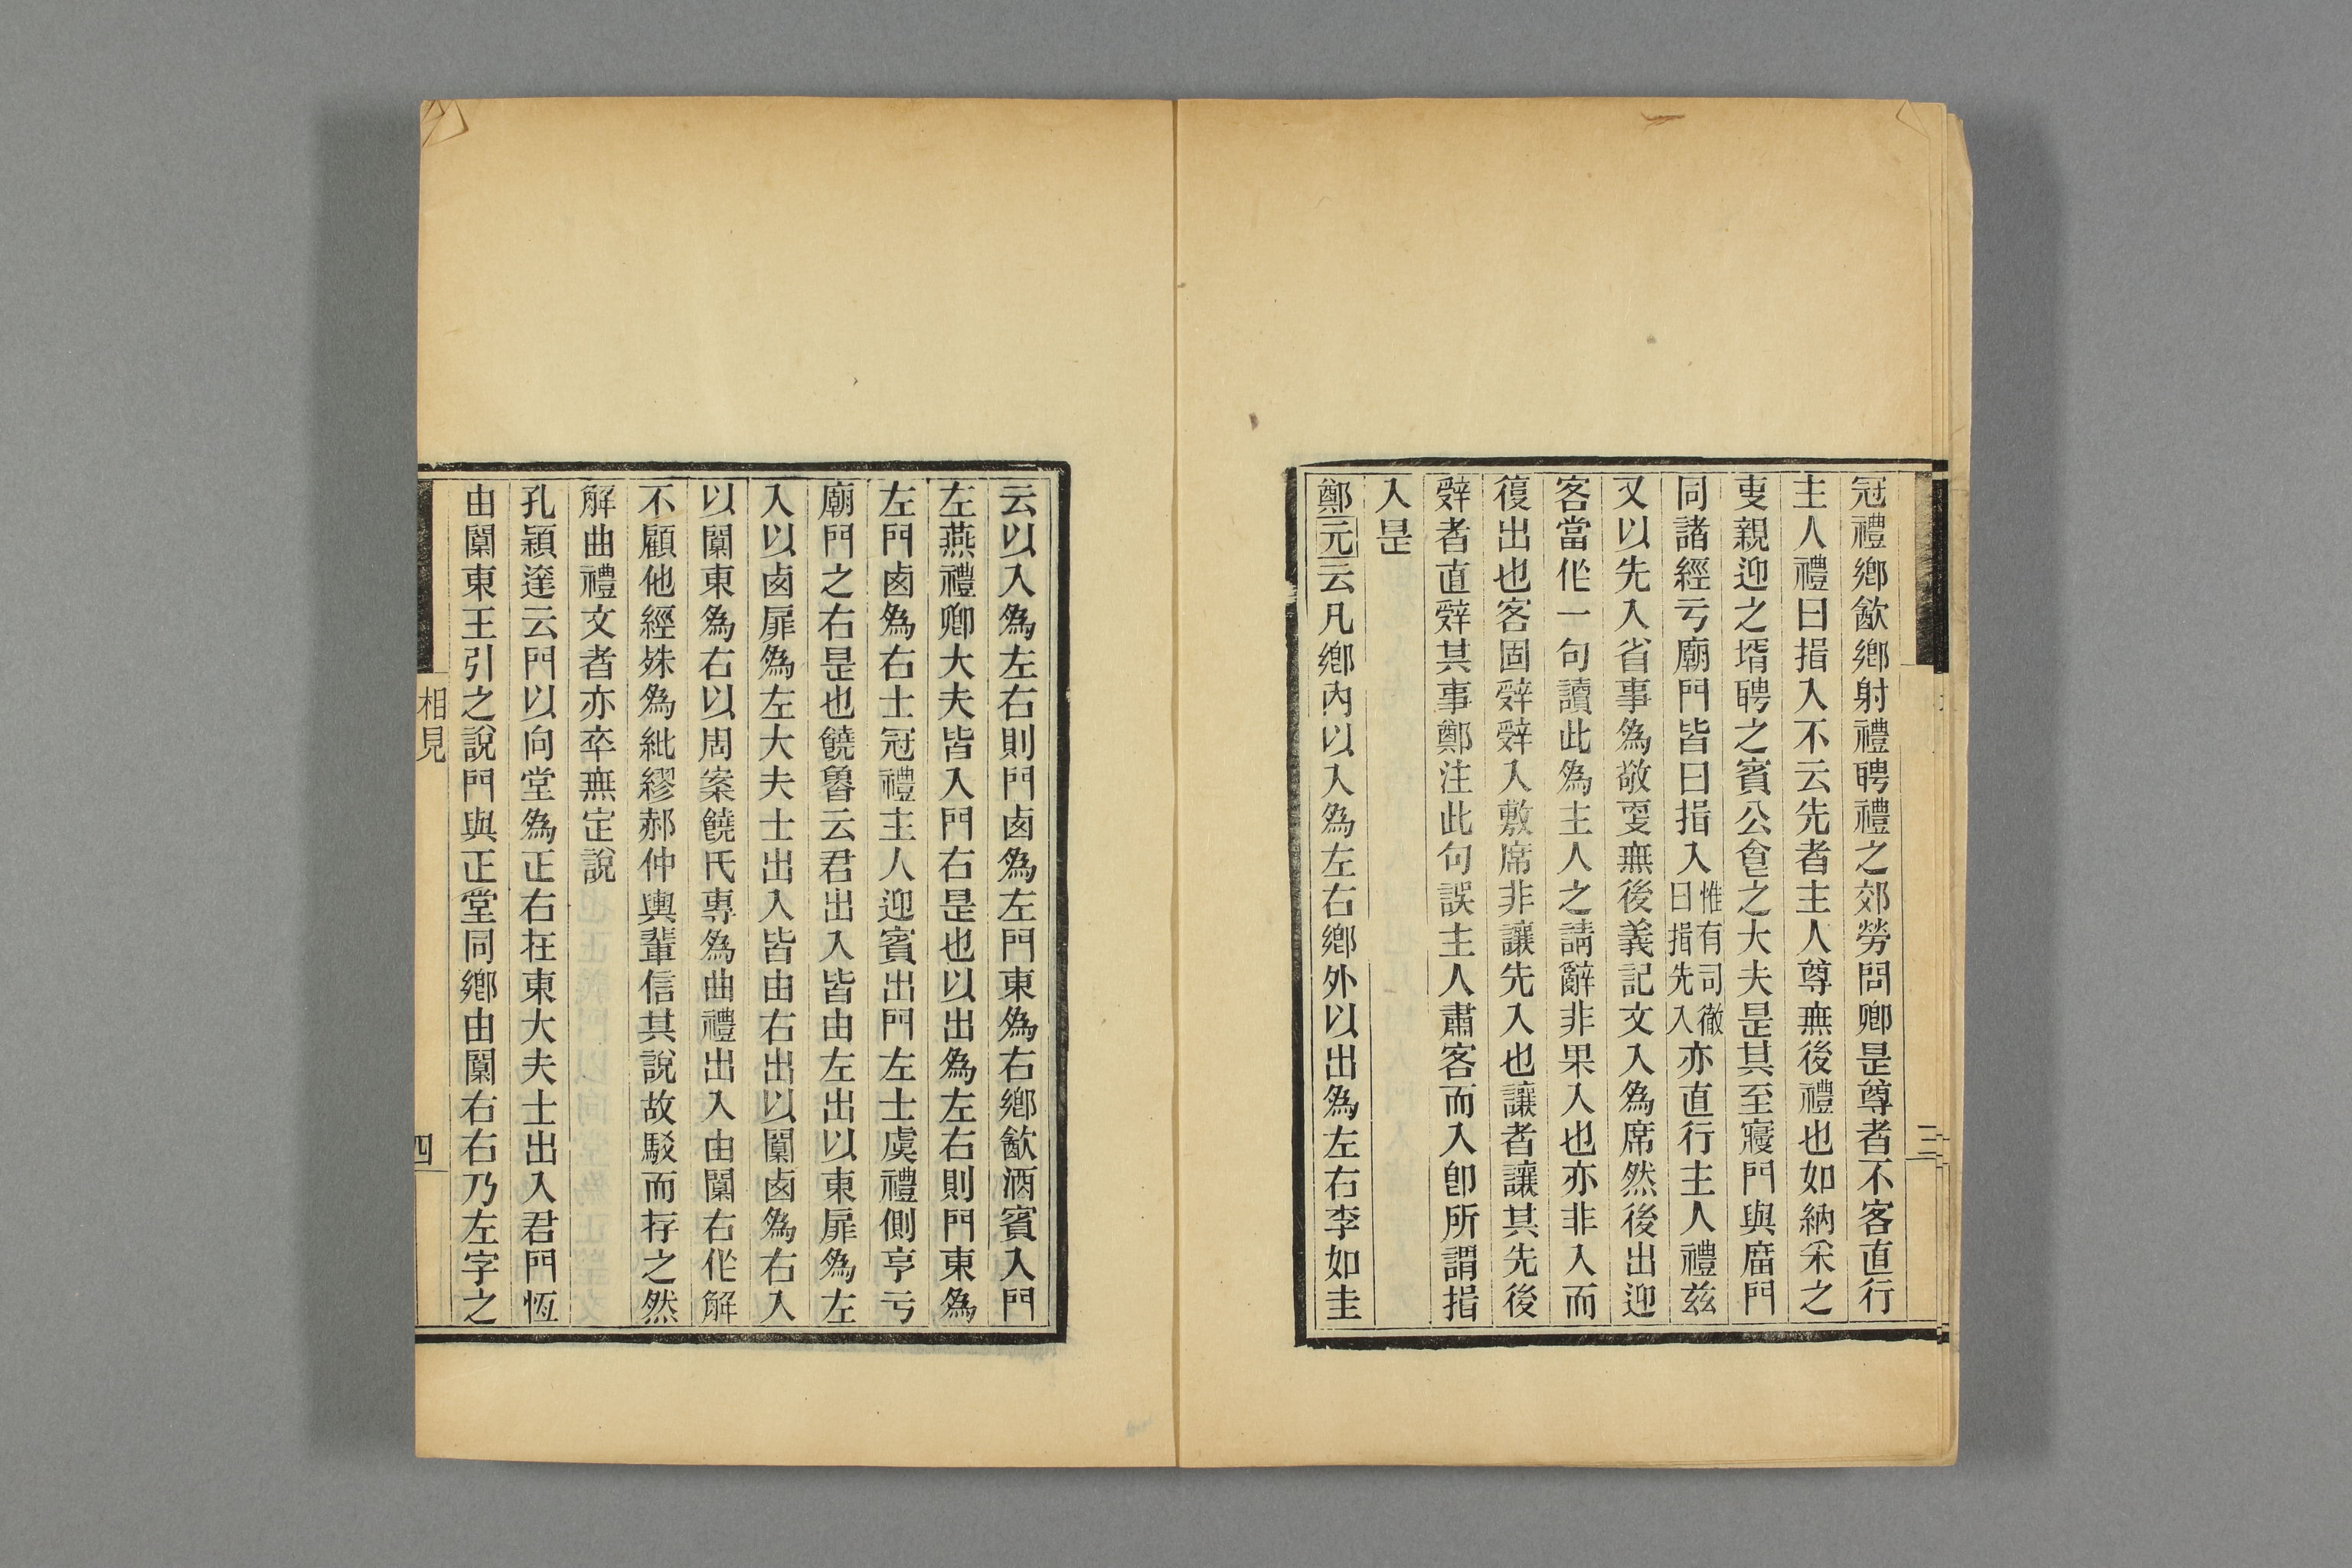 冠禮鄉飮鄉射禮聘禮之郊勞問卿是尊者不客直行
主人禮曰揖入不云先者主人尊無後禮也如納采之
叓親迎之壻聘之賓公食之大夫是其至寢門與廟門
同諸經亏廟門皆曰揖入惟有司徹曰揖先入亦直行主人禮茲
又以先入省事為敬叓無後義記文入為席然後出迎
客當作一句讀此為主人之請辭非果入也亦非入而
復出也客固辤辤入敷席非讓先入也讓者讓其先後
辤者直辤其事鄭注此句誤主人肅客而入卽所謂揖
入是
鄭元云凡鄉內以入為左右鄉外以出為左右李如圭
云以入為左右則門卤為左門東為右鄉飮酒賓入門
左燕禮卿大夫皆入門右是也以出為左右則門東為
左門卤為右士冠禮主人迎賓出門左士虞禮側亨亏
廟門之右是也饒魯云君出入皆由左出以東扉為左
入以卤扉為左大夫士出入皆由右出以闑卤為右入
以闑東為右以周案饒氏專為曲禮出入由闑右作解
不顧他經姝為紕繆郝仲輿輩信其說故駁而存之然
解曲禮文者亦卒無定說
孔穎達云門以向堂為正右在東大夫士出入君門恆
由闑東王引之說門與正堂同鄉由闑右右乃左字之
相見
四
三